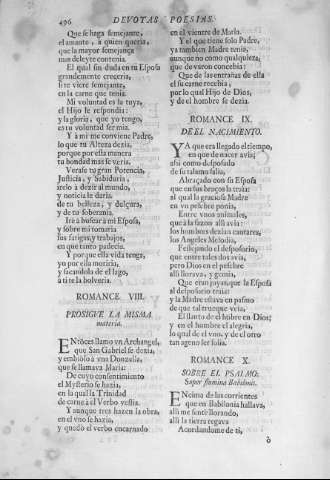 496 DEVOTAS POESIAS.
Que se haga semejante,
el amante, à quien queria,
que la mayor semejança
mas deleyte contenia.
El qual sin duda en tu Esposa
grandemente creceria,
si te viere semejante,
en la carne que tenia.
Mi voluntad es la tuya,
el Hijo le respondia:
y la gloria, que yo tengo,
es tu voluntad ser mia.
Y à mi me conviene Padre,
lo que tu Alteza dezia,
porque por esta manera
tu bondad mas se veria.
Verase tu gran Potencia,
Justicia, y Sabiduria,
irelo à dezir al mundo,
y noticia le daria.
de tu belleza, y dulçura,
y de tu soberania.
Irè à buscar à mi Esposa,
y sobre mi tomaria
sus fatigas, y trabajos,
en que tanto padecia.
Y porque ella vida tenga,
yo por ella moriria,
y sacandola de el lago,
à ti te la bolveria.
ROMANCE VIII.
PROSIGVE LA MISMA
materia.
ENtõces llamo vn Archangel,
que San Gabriel se dezia,
y embiòlo à vna Donzella,
que se llamava Maria:
De cuyo consentimiento
el Mysterio se hazia,
en la qual la Trinidad
de carne à el Verbo vestia.
Y aunque tres hazen la obra,
en el vno se hazia,
y quedò el verbo encarnado
en el vientre de Maria.
Y el que tiene solo Padre,
ya tambien Madre tenia,
aunque no como qualquiera,
que de varon concebia:
Que de las entrañas de ella
el su carne recebia,
por lo qual Hijo de Dios,
y de el hombre se dezia.
ROMANCE IX.
DE EL NACIMIENTO.
YA que era llegado el tiempo,
en que de nacer avia;
assi como desposado
de su talamo salia,
Abraçado con su Esposa
que en sus braços la traia:
al qual la graciosa Madre
en vn pesebre ponia,
Entre vnos animales,
que à la sazon alli avia:
los hombres dezian cantares,
los Angeles Melodia,
Festejando el desposorio,
que entre tales dos avia,
pero Dios en el pesebre
alli llorava, y gemia,
Que eran joyas, que la Esposa
al desposorio traia:
y la Madre estava en pasmo
de que tal trueque veia,
El llanto de el hõbre en Dios;
y en el hombre el alegria,
lo qual de el vno, y de el otro
tan ageno ser solia.
ROMANCE X.
SOBRE EL PSALMO:
Super flumina Babilonis.
ENcima de las corrientes
que en Babilonia hallava,
alli me sentè llorando,
alli la tierra regava
Acordandome de ti,
ò